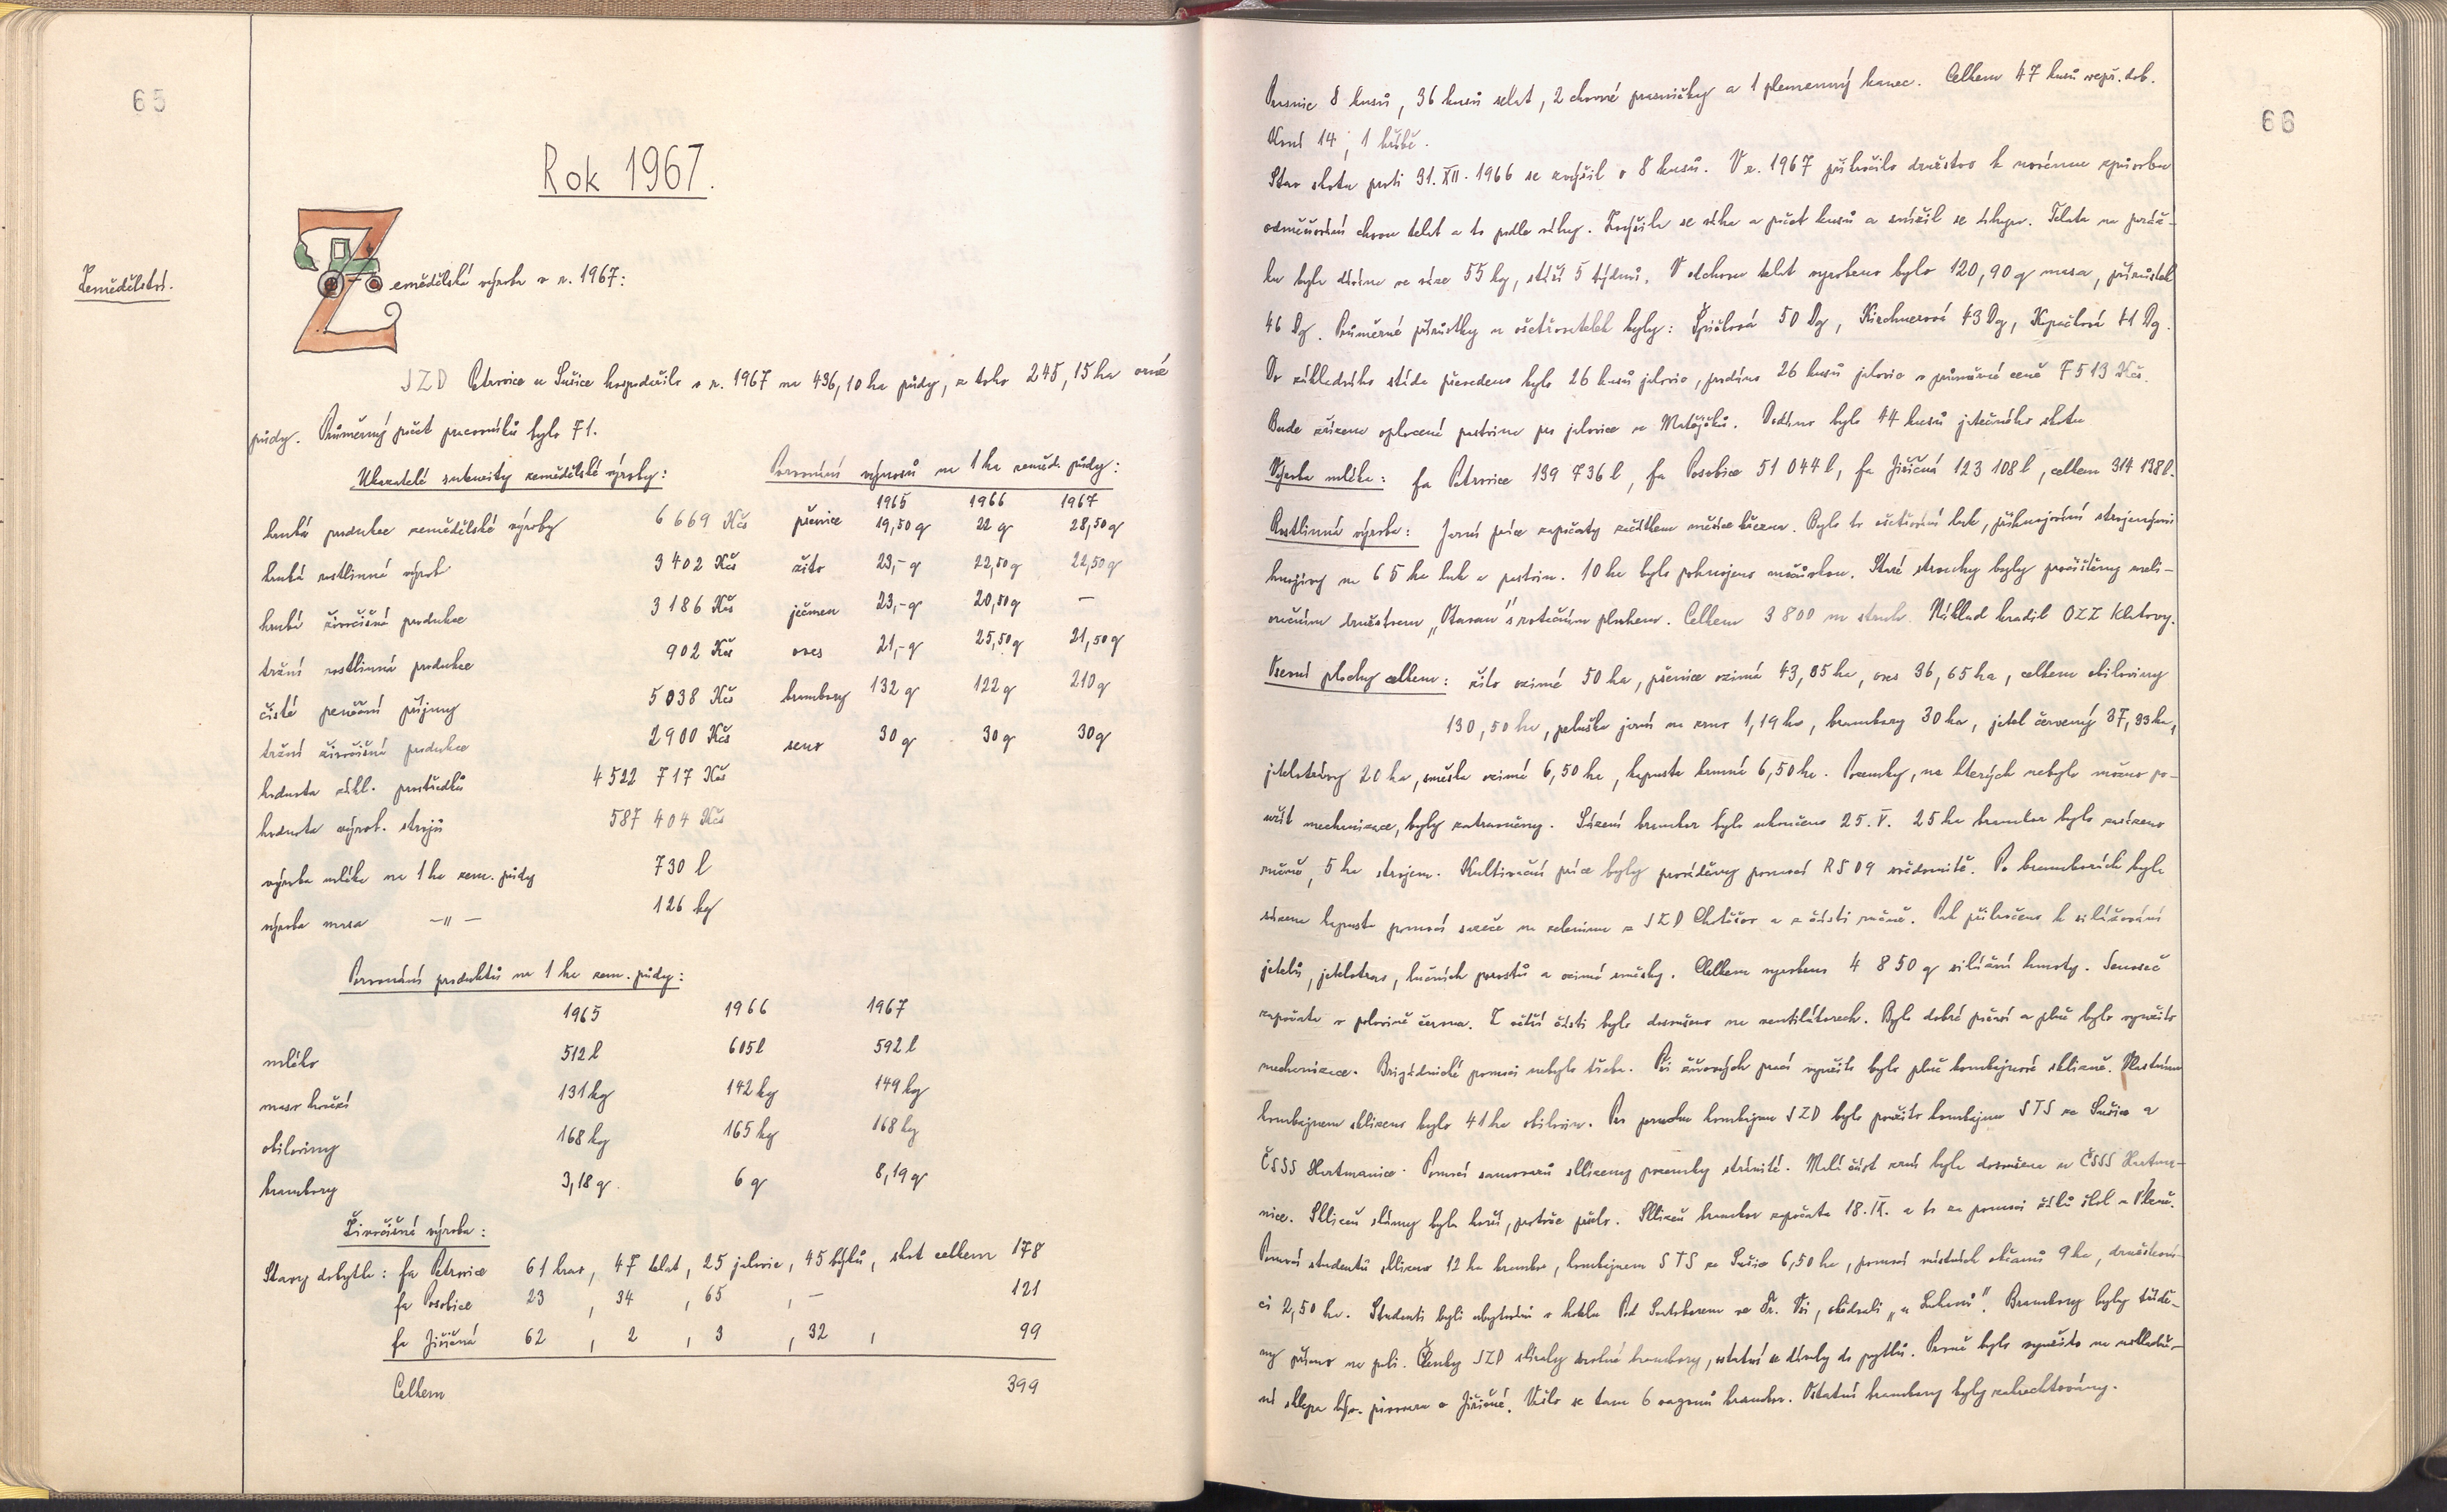 65
Rok 1967.
Zemědělství.
Zemědělská výroba v r. 1967:
JZD Petrovice u Sušice hospodařilo v r. 1967 na 436,10 ha půdy, z toho 245,15 ha orné
půdy. Průměrný počet pracovníků bylo 71.
Ukazatelé intensity zemědělské výroby:
hrubá produkce zemědělské výroby 6 669 Kčs
hrubá rostlinná výrob 3 402 Kčs
hrubá živočišná produkce 3 186 Kčs
tržní rostlinná produkce 902 Kčs
čisté peněžní příjmy 5 038 Kčs
tržní živočišná produkce 2 900 Kčs
hodnota zákl. prostředků 4 522 717 Kčs
hodnota výrob. strojů 587 404 Kčs
výroba mléka na 1 ha zem. půdy 730 l
výroba masa —"— 126 kg
Porovnání výnosů na 1 ha zeměd. půdy:
1965 1966 1967
pšenice 19,50 q 22 q 28,50 q
žito 23,- q 22,50 q 22,50 q
ječmen 23,- q 20,50 q —
oves 21,- q 25,50 q 21,50 q
brambory 132 q 122 q 210 q
seno 30 q 30 q 30 q
Porovnání produktů na 1 ha zem. půdy:
1965 1966 1967
mléko 512 l 605 l 592 l
maso hovězí 131 kg 142 kg 149 kg
obiloviny 168 kg 165 kg 168 kg
brambory 3,18 q. 6 q 8,19 q
Živočišná výroba:
Stavy dobytka: fa Petrovice 61 krav, 47 telat, 25 jalovic, 45 býků, skot celkem 178
fa Posobice 23 , 34 , 65 , — 121
fa Jiřičná 62 , 2 , 3 , 32 , 99
Celkem 399
66
Prasnic 8 kusů, 36 kusů selat, 2 chovné prasničky a 1 plemenný kanec. Celkem 47 kusů vepř. dob.
Koní 14, 1 hříbě.
Stav skotu proti 31. XII. 1966 se zvýšil o 8 kusů. V r. 1967 přikročilo družstvo k novému způsobu
odměňování chovu telat a to podle váhy. Zvýšila se váha a počet kusů a snížil se úhyn. Telata na poráž-
ku byla dávána ve váze 55 kg, stáří 5 týdnů. V odchovu telat vyrobeno bylo 120,90 q masa, přírůstek
46 Dg. Průměrné přírůstky u ošetřovatelek byly: Špičková 50 Dg, Kirchnerová 43 Dg, Kopačková 41 Dg.
Do základního stáda převedeno bylo 26 kusů jalovic, prodáno 26 kusů jalovic v průměrné ceně 7 513 Kčs.
Bude zřízena oplocená pastvina pro jalovice na Matějáků. Dodáno bylo 44 kusů jatečného skotu
Výroba mléka: fa Petrovice 139 736 l, fa Posobice 51 044 l, fa Jiřičná 123 108 l, celkem 314 138 l.
Rostlinná výroba: Jarní práce započaty začátkem měsíce března. Bylo to ošetřování luk, přihnojování strojenými
hnojivy na 65 ha luk a pastvin. 10 ha bylo pohnojeno močůvkou. Staré stroužky byly pročištěny meli-
oračním družstvem „Otavan" s rotačním pluhem. Celkem 3 800 m struh. Náklad hradil OZZ Klatovy.
Osevní plochy celkem: žito ozimé 50 ha, pšenice ozimá 43,85 ha, oves 36,65 ha, celkem obiloviny
130,50 ha, peluška jarní na zrno 1,19 ha, brambory 30 ha, jetel červený 37,33 ha,
jetelotrávy 20 ha, směska ozimá 6,50 ha, kapusta krmná 6,50 ha. Pozemky, na kterých nebylo možno po-
užít mechanizace, byly zatravněny. Sázení brambor bylo ukončeno 25. V. 25 ha brambor bylo zasázeno
ručně, 5 ha strojem. Kultivační práce byly prováděny pomocí RS 09 svědomitě. Po bramborách byla
sázena kapusta pomocí sazeče na zeleninu z JZD Chotěšov a z části ručně. Pak přikročeno k silážování
jetelů, jetelotrav, lučních porostů a ozimé směsky. Celkem vyrobeno 4 850 q silážní hmoty. Senoseč
započata v polovině června. Z větší části bylo dosoušeno na ventilátorech. Bylo dobré počasí a plně bylo využito
mechanizace. Brigádnické pomoci nebylo třeba. Při žňových prací využito bylo plně kombajnové sklizně. Vlastním
kombajnem sklizeno bylo 41 ha obilovin. Po poruchu kombajnu JZD bylo použito kombajnu STS ze Sušice a
ČSSS Hartmanice. Pomocí samovazů sklizeny pozemky stránité. Malá část zrní byla dosoušena u ČSSS Hartma-
nice. Sklizeň slámy byla horší, protože pršelo. Sklizeň brambor započata 18. IX. a to za pomoci žáků škol z Plzně.
Pomocí studentů sklizeno 12 ha brambor, kombajnem STS ze Sušice 6,50 ha, pomocí místních občanů 9 ha, družstevní-
ci 2,50 ha. Studenti byli ubytováni v hotelu Pod Svatoborem ve Sv. Vsi, obědvali „u Sukovů". Brambory byly tříděn-
ny přímo na poli. Členky JZD sbíraly drobné brambory, ostatní se dávaly do pytlů. Prvně bylo využito na uskladně-
ní sklepa býv. pivovaru v Jiřičné. Vešlo se tam 6 vagonů brambor. Ostatní brambory byly zakrechtovány.